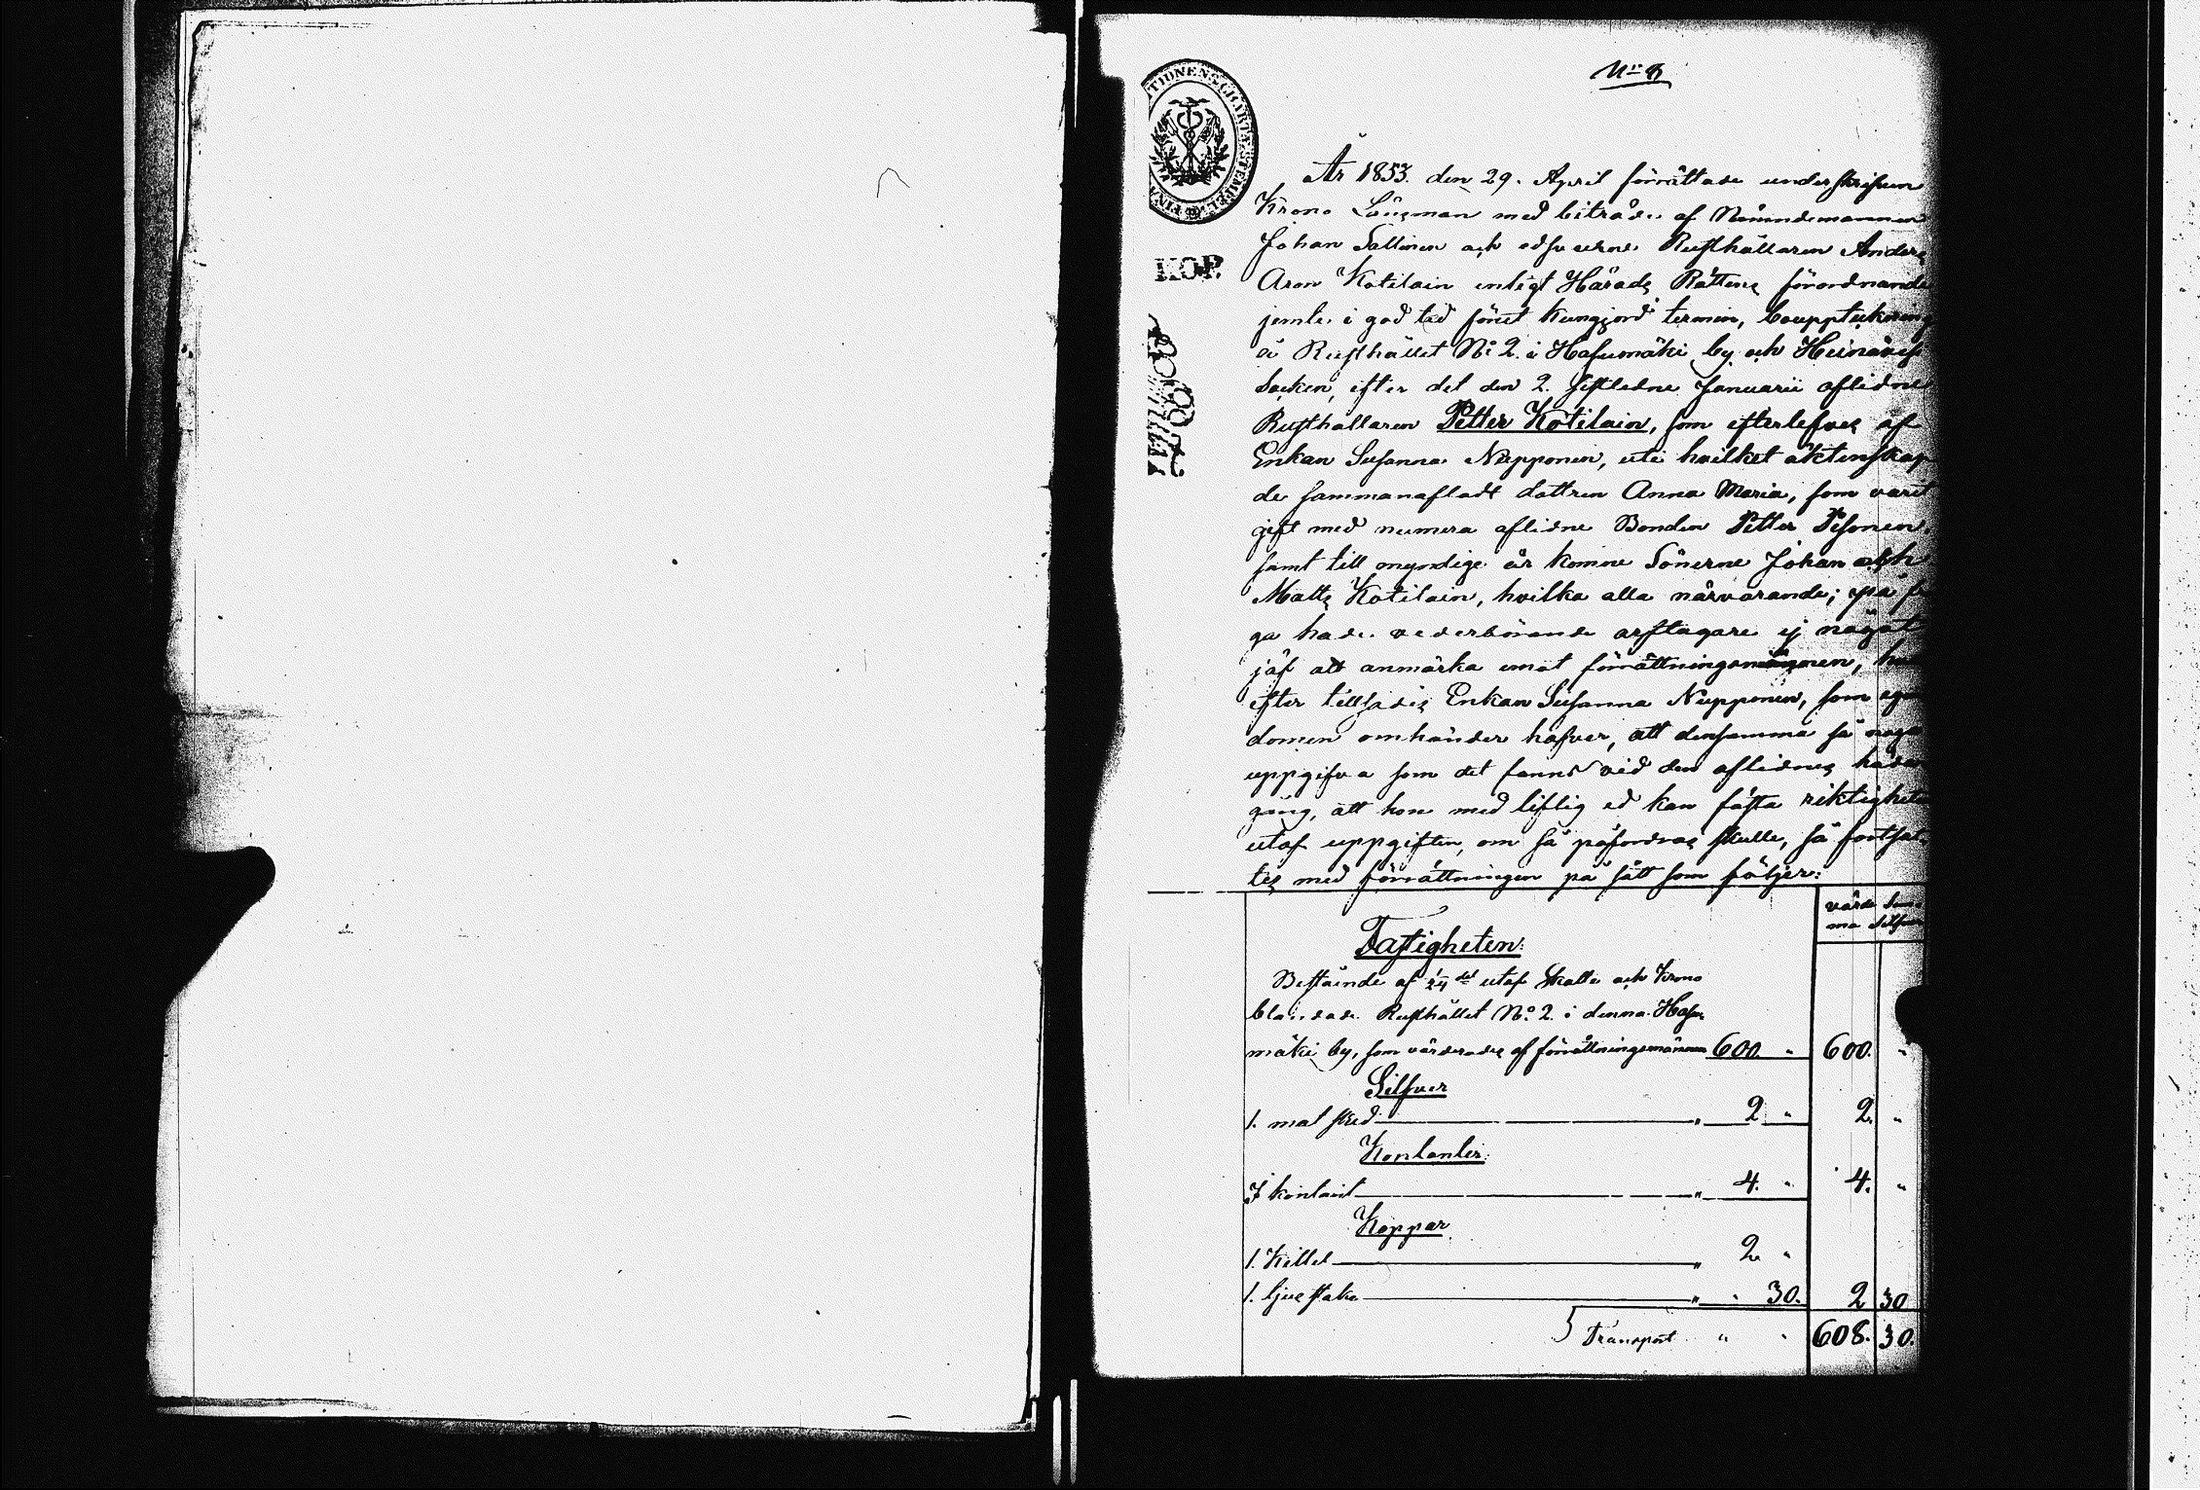 No 8
År 1853. den 29. April förrättade underskrifven
Krono Länsman med biträde af Nämndemannen
Johan Tallinen och edsvurne Rusthållaren Anders
Aron Kotilain enligt Härads Rättens förordnande
jemte i god tid förut kungjord termin, bouppteckning
å Rusthållet No 2. i Hasumäki by och Heinävesi
Socken, efter det den 2. sistledne Januarii aflidne
Rusthållaren Petter Kotilain, som efterlefves af
Enkan Susanna Nupponen, uti hvilket äktenskap
de sammanafladt dottren Anna Maria, som varit
gift med numera aflidne Bonden Petter Pesonen,
samt till myndige år komne Sönerne Johan och
Matts Kotilain, hvilka alla närvarande; på frå
ga hade vederbörande arftagare ej något
jäf att anmärka emot förrättningsmännen,
efter tillsades Enkan Susanna Nupponen, som egen
domen omhänder hafver, att densamma så noga
uppgifva som det fanns vid den aflidnes hädan
gång, att hon med liflig ed kan fästa riktigheten
utaf uppgiften, om så påfordras skulle, så fortsat-
tes med förrättningen på sätt som följer:
värde Sum
ma Silfver
Fastigheten:
Bestående af 1/24del utaf Skatte och Krono
blandade Rusthållet No 2. i denna Hasu-
mäki by, som värderades af förrättningsmännen 600 " 600. "
Silfver
1. mat sked " 2 " 2. "
Kontanter
I kontant " 4. " 4. "
Koppar
1. Kittel " 2 "
1. ljusstake " " 30. 2 30
Transport " " 608. 30.
KOP.